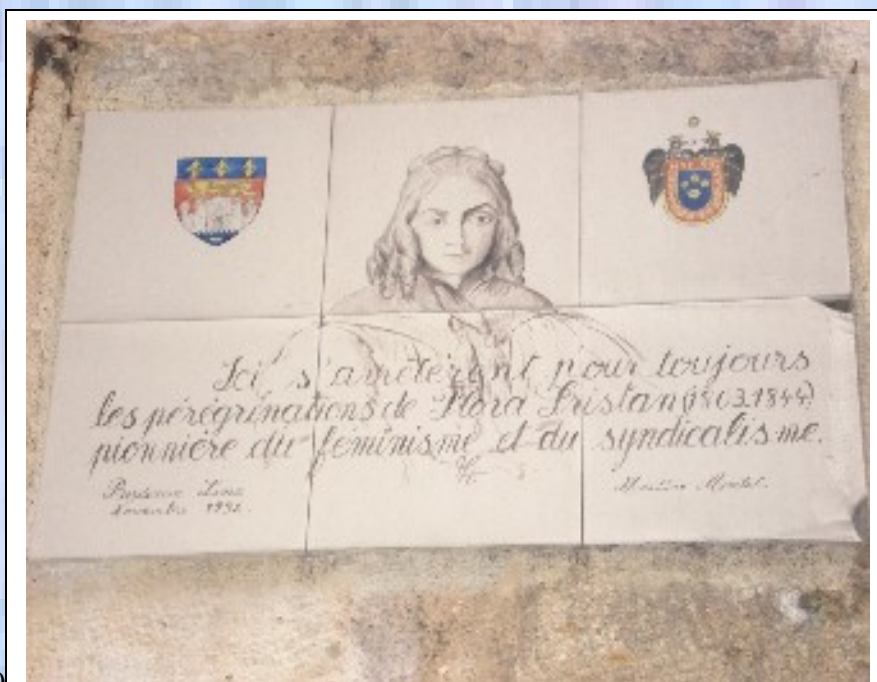 Ici s'arrêtèrent pour toujours
les pérégrinations de Flora Tristan (1803.1844)
pionnière du féminisme et du syndicalisme.
Bordeaux Lima
novembre